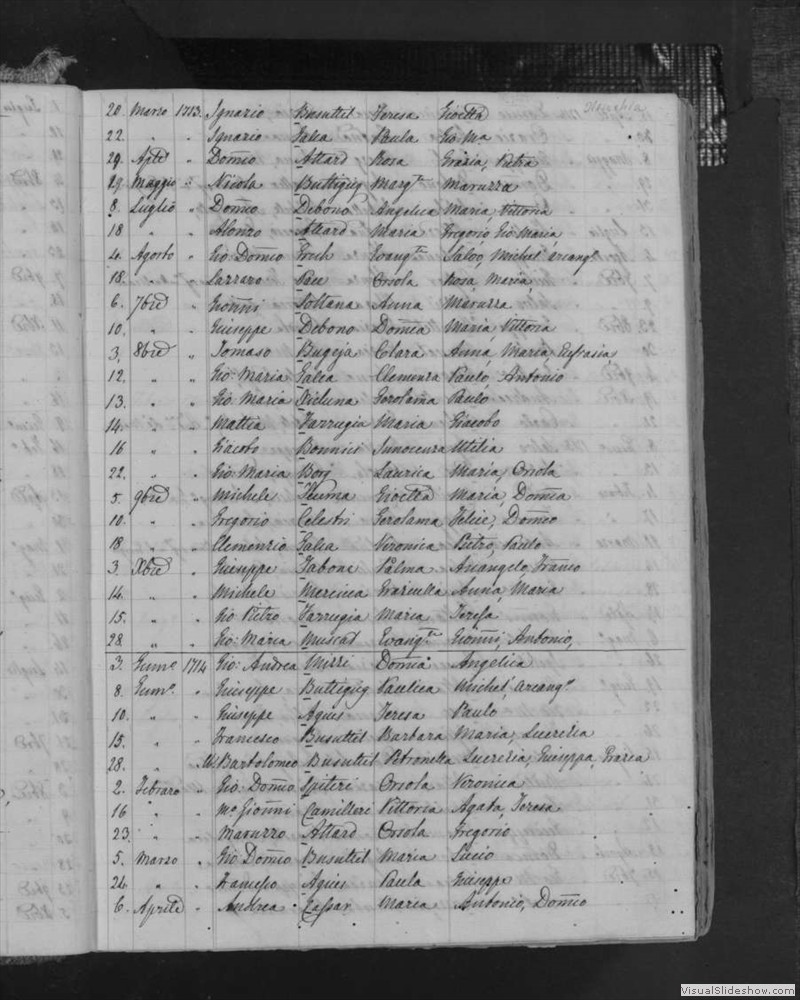 20. Marzo 1713. Ignazio Busuttil Teresa Gioetta
22. " " Ignazio Galea Paula Gio Ma
29. Aple " Domco Attard Rosa Grazia, Pietra
29. Maggio " Nicola Buttigieg Margta Maruzza
8. Luglio " Domco Debono Angelica Maria, Vittoria
18 " " Alonzo Attard Maria Gregorio, Gio Maria,
4. Agosto " Gio: Domco Grech Evangta Salvo, Michel' Arcango
18. " " Lazzaro Pace Orsola Rosa, Maria,
6. 7bre " Gionni Soltana Anna Maruzza
10. " " Giuseppe Debono Domca Maria, Vittoria
3. 8bre " Tomaso Bugeja Clara Anna, Maria, Eufrasia,
12. " " Gio: Maria Galea Clemenza Paulo, Antonio
13. " " Gio: Maria Xicluna Gerolama Paulo
14. " " Mattia Farrugia Maria Giacobo
16 " " Giacobo Bonnici Innocenza Attilia
22. " " Gio: Maria Borg Laurica Maria, Orsola
5. 9bre " Michele Theuma Gioetta Maria, Domca
10. " " Gregorio Celestri Gerolama Felice, Domco
18 " " Clemenzio Galea Veronica Pietro, Paulo
3. Xbre " Giuseppe Tabone Palma Arcangelo, Franco
14. " " Michele Mercieca Graziulla Anna, Maria
15. " " Gio Pietro Farrugia Maria Teresa
28. " " Gio: Maria Muscat Evangta Gionni, Antonio,
3. Genno 1714 Gio: Andrea Mizzi Domca Angelica
8. Genno " Giuseppe Buttigieg Paulica Michel' Arcango
10. " " Giuseppe Agius Teresa Paulo
15. " " Francesco Busuttil Barbara Maria, Lucrezia
28. " Bartolomeo Busuttil Petronella Lucrezia, Giuseppa, Grazia
2. Febraro " Gio: Domco Spiteri Orsola Veronica
16 " " Mo Gionni Camilleri Vittoria Agata, Teresa
23. " " Maruzzo Attard Orsola Gregorio
5. Marzo " Gio Domco Busuttil Maria Lucio
24. " " Francesco Agius Paula Giuseppe
6. Aprile " Andrea Cassar Maria Antonio, Domco
VisualSlideshow.com